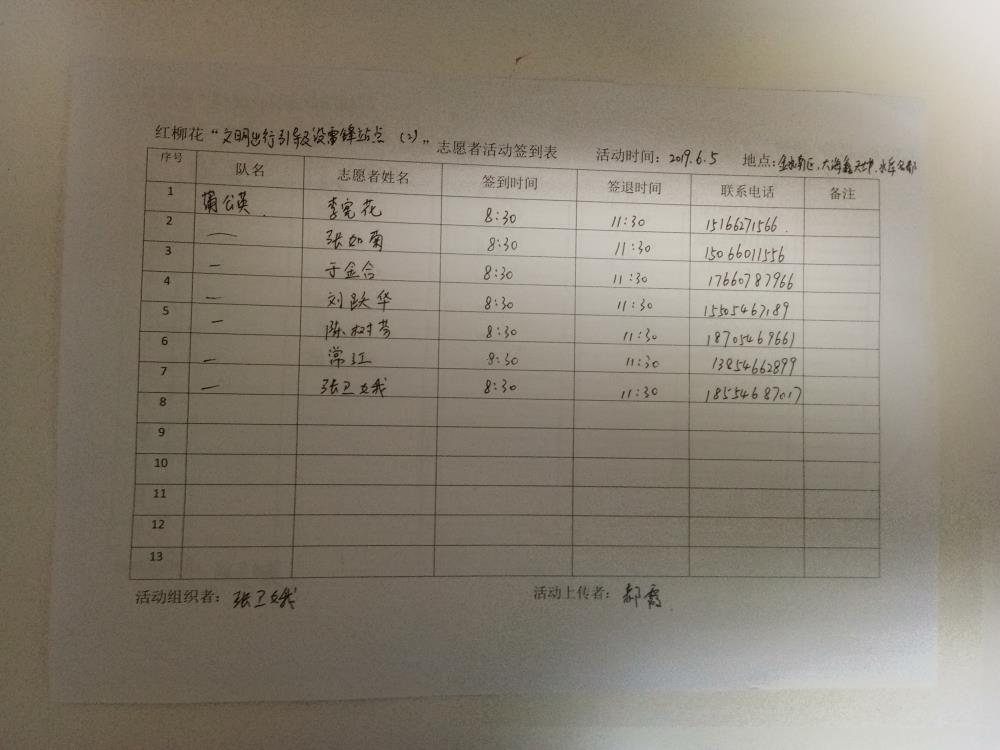 红柳花“文明出行引导及设雷锋站点 (2)”志愿者活动签到表 活动时间：2019.6.5 地点：
序号 队名 志愿者姓名 签到时间 签退时间 联系电话 备注
1 蒲公英 李宪花 8:30 11:30 15166271566
2 — 张如菊 8:30 11:30 15066011556
3 — 于金合 8:30 11:30 17660787966
4 — 刘跃华 8:30 11:30 15505467189
5 — 陈树芳 8:30 11:30 18705467661
6 — 常江 8:30 11:30 13854662899
7 — 张卫娥 8:30 11:30 18554687017
8
9
10
11
12
13
活动组织者：张卫娥 活动上传者：郝霞